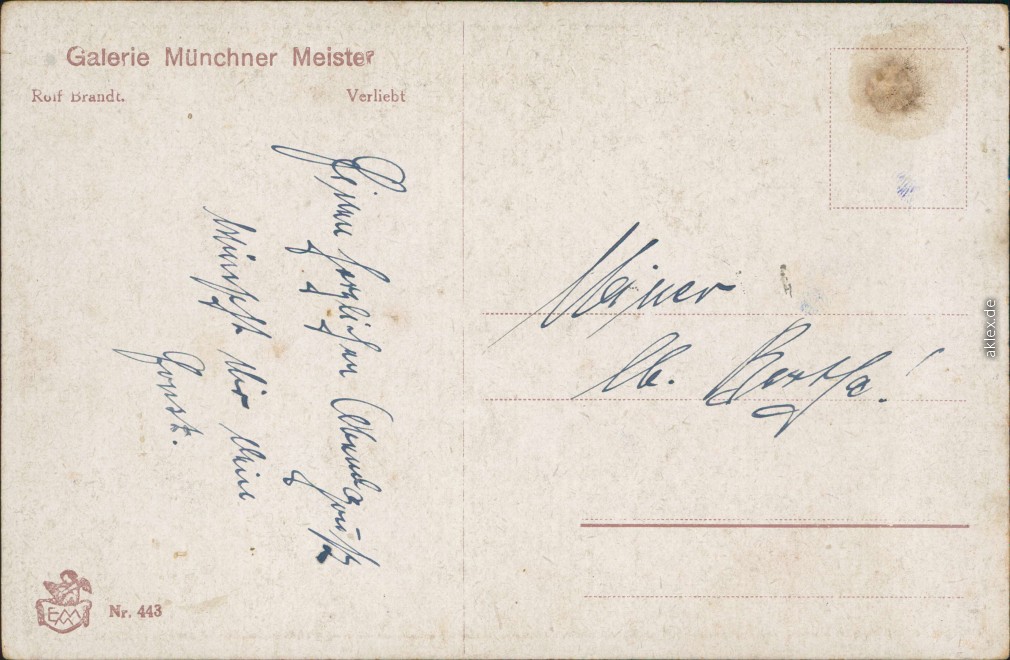 Galerie Münchner Meister
Rolf Brandt.
Verliebt
Einen herzlichen Abendgruß
wünscht Dir Dein
Horst.
Meiner
lb. Bertha!
Nr. 443
EMM
aklex.de